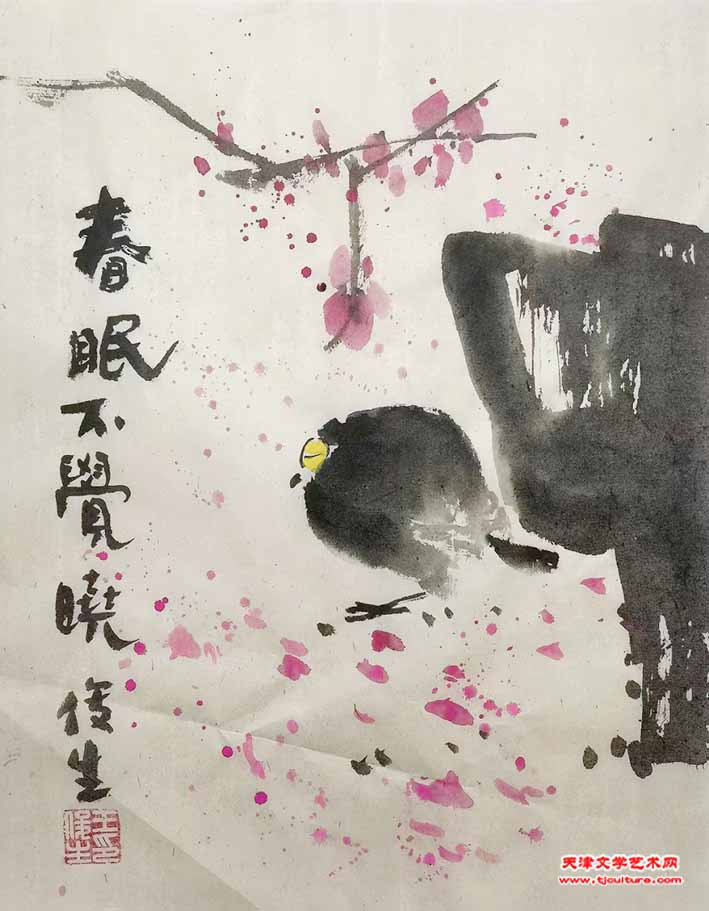 春眠不覺曉
俊生
天津文学艺术网
www.tjculture.com